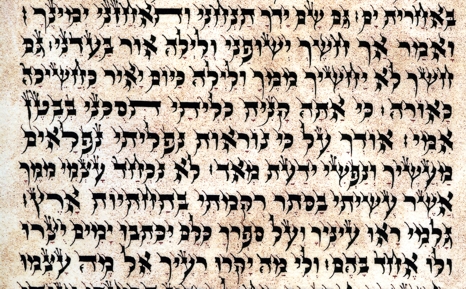 באחרית ים: גם שם ידך תנחני ותאחזני ימינך:
ואמר אך חשך ישופני ולילה אור בעדני: גם
חשך לא יחשיך ממך ולילה כיום יאיר כחשיכה
כאורה: כי אתה קנית כליתי תסכני בבטן
אמי: אודך על כי נוראות נפליתי נפלאים
מעשיך ונפשי ידעת מאד: לא נכחד עצמי ממך
אשר עשיתי בסתר רקמתי בתחתיות ארץ:
גלמי ראו עיניך ועל ספרך כלם יכתבו ימים יצרו
ולו אחד בהם: ולי מה יקרו רעיך אל מה עצמו